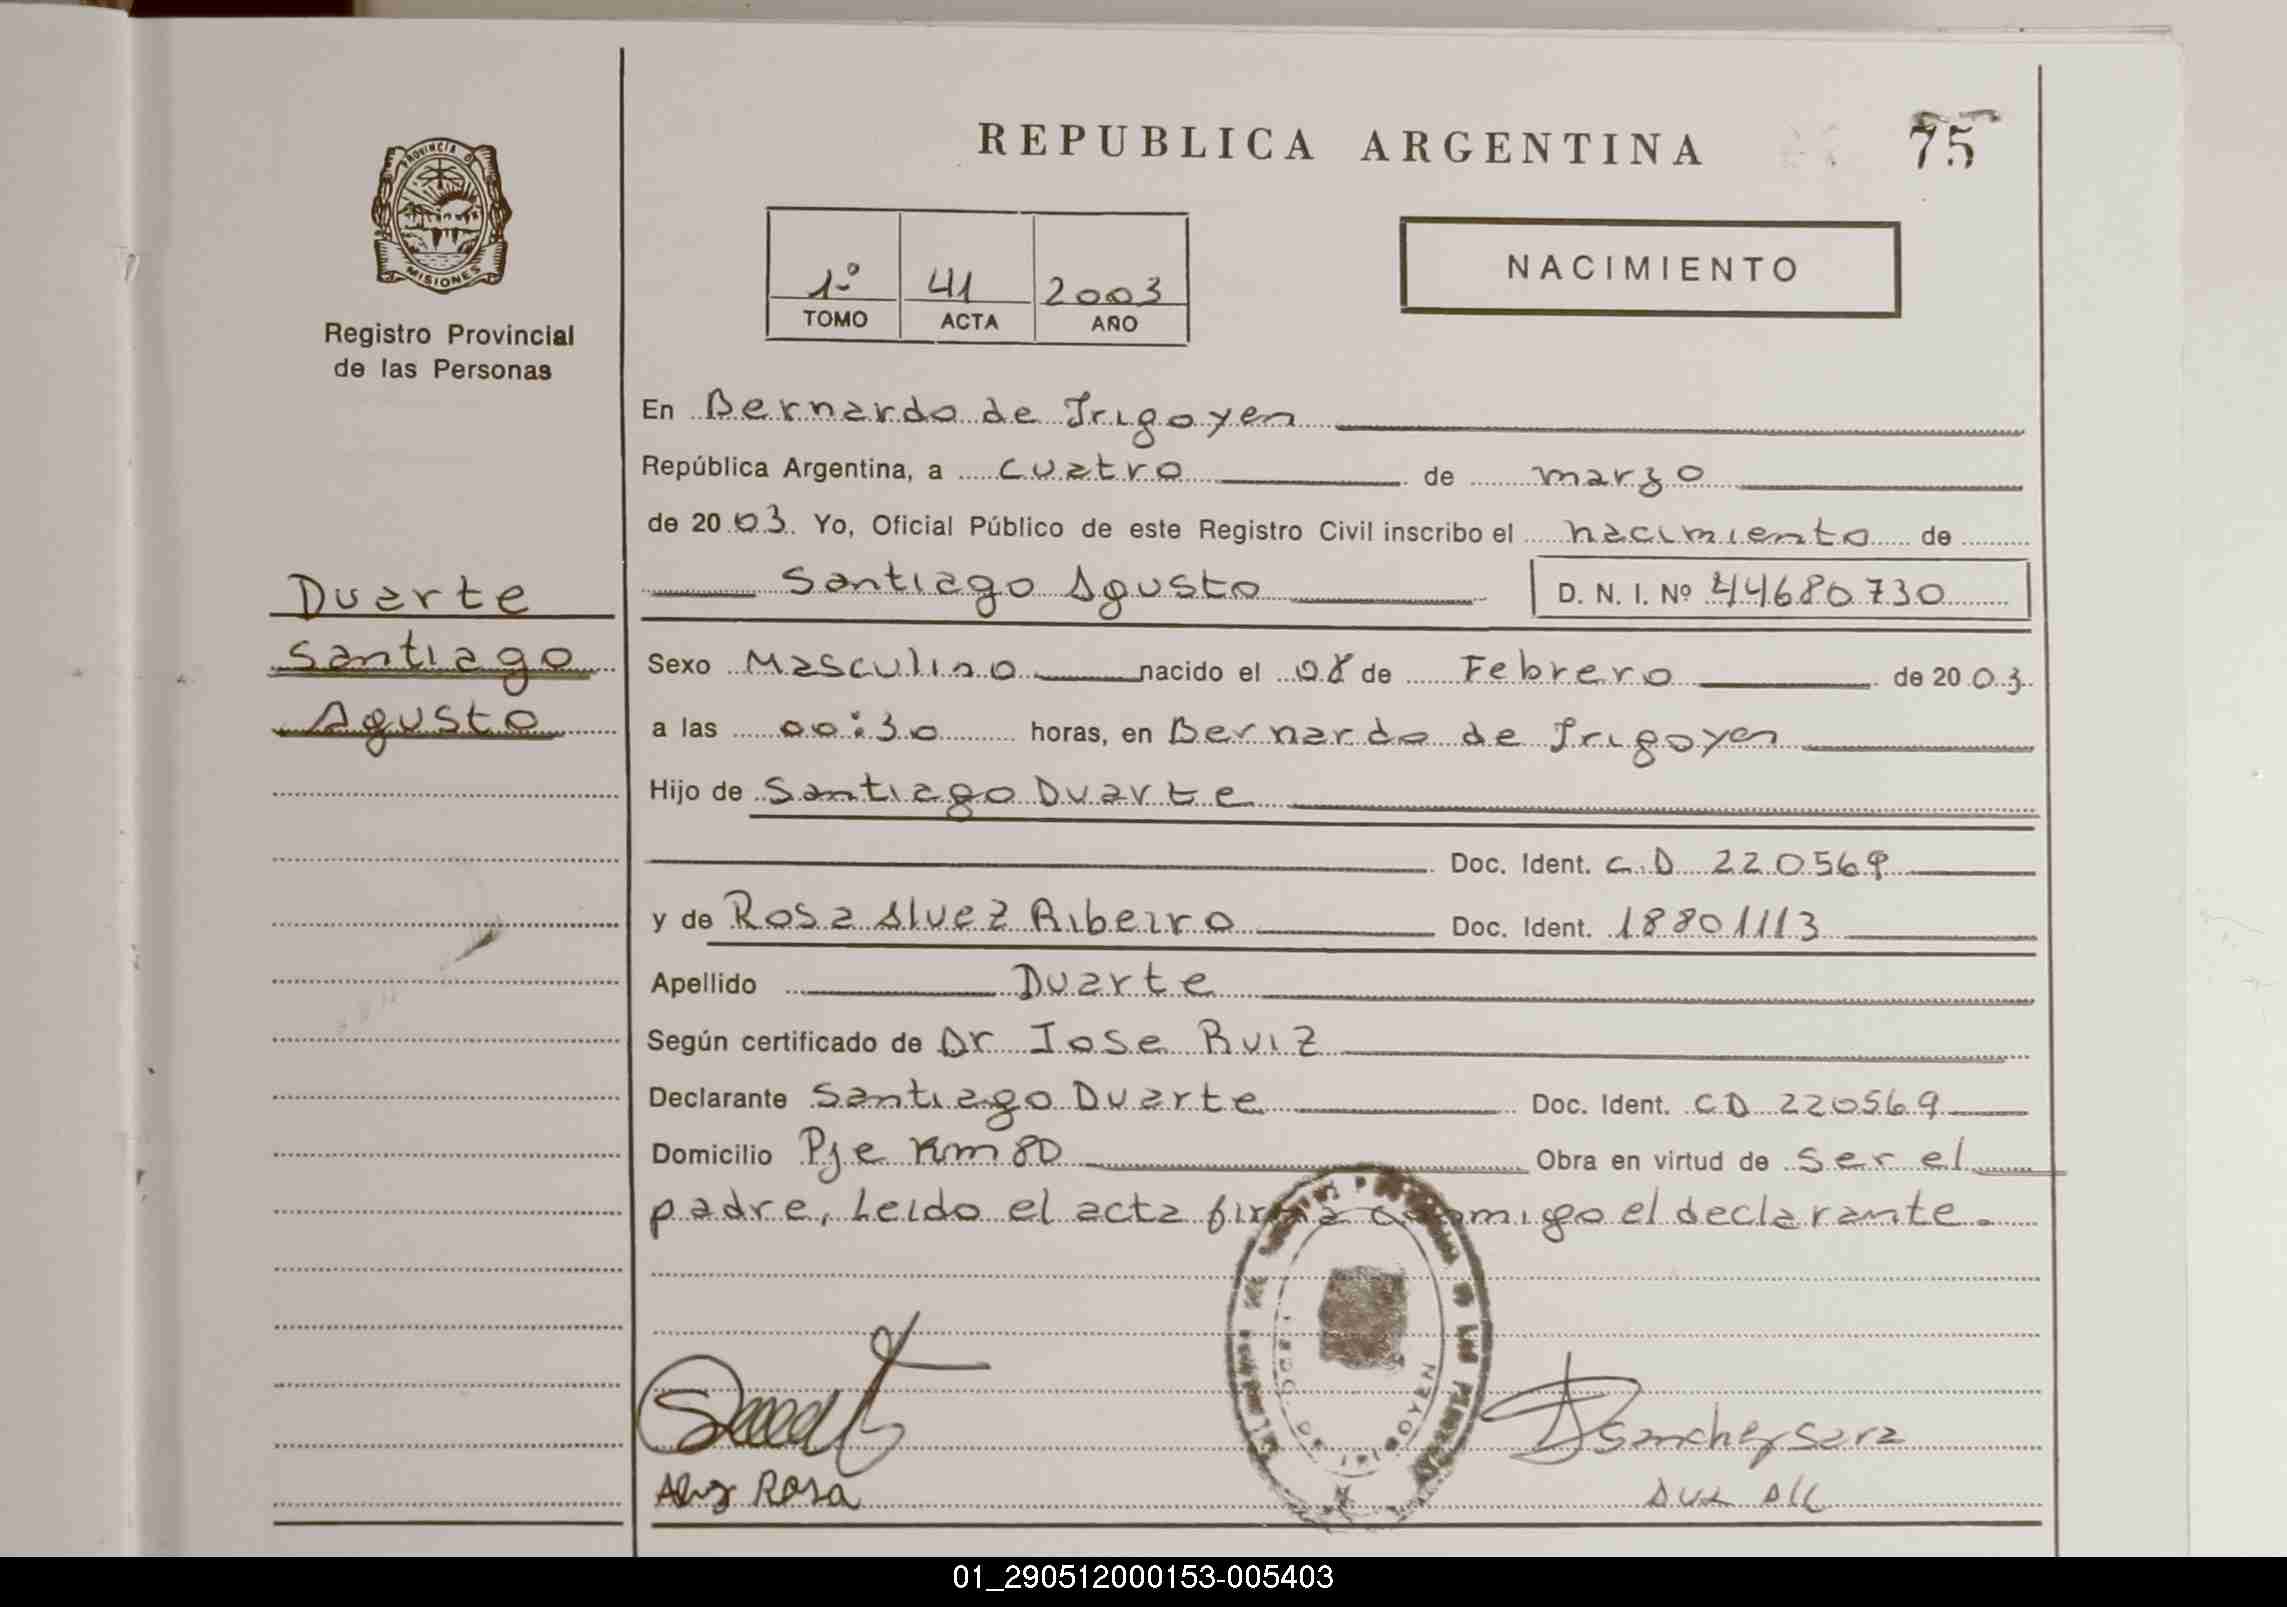 REPUBLICA ARGENTINA
75
PROVINCIA DE
MISIONES
Registro Provincial
de las Personas
1º 41 2003
TOMO ACTA AÑO
NACIMIENTO
En Bernardo de Irigoyen
República Argentina, a cuatro de marzo
de 2003. Yo, Oficial Público de este Registro Civil inscribo el nacimiento de
Santiago Agusto D. N. I. Nº 44680730
Duarte
Santiago
Agusto
Sexo Masculino nacido el 08 de Febrero de 2003.
a las 00:30 horas, en Bernardo de Irigoyen
Hijo de Santiago Duarte
Doc. Ident. C.D 220569
y de Rosa Alvez Ribeiro Doc. Ident. 18801113
Apellido Duarte
Según certificado de Dr Jose Ruiz
Declarante Santiago Duarte Doc. Ident. CD 220569
Domicilio Pje Km 80 Obra en virtud de ser el
padre, Leido el acta firma conmigo el declarante.
DE IRIGOYEN
Sanchez Sara
Rosa
01_290512000153-005403